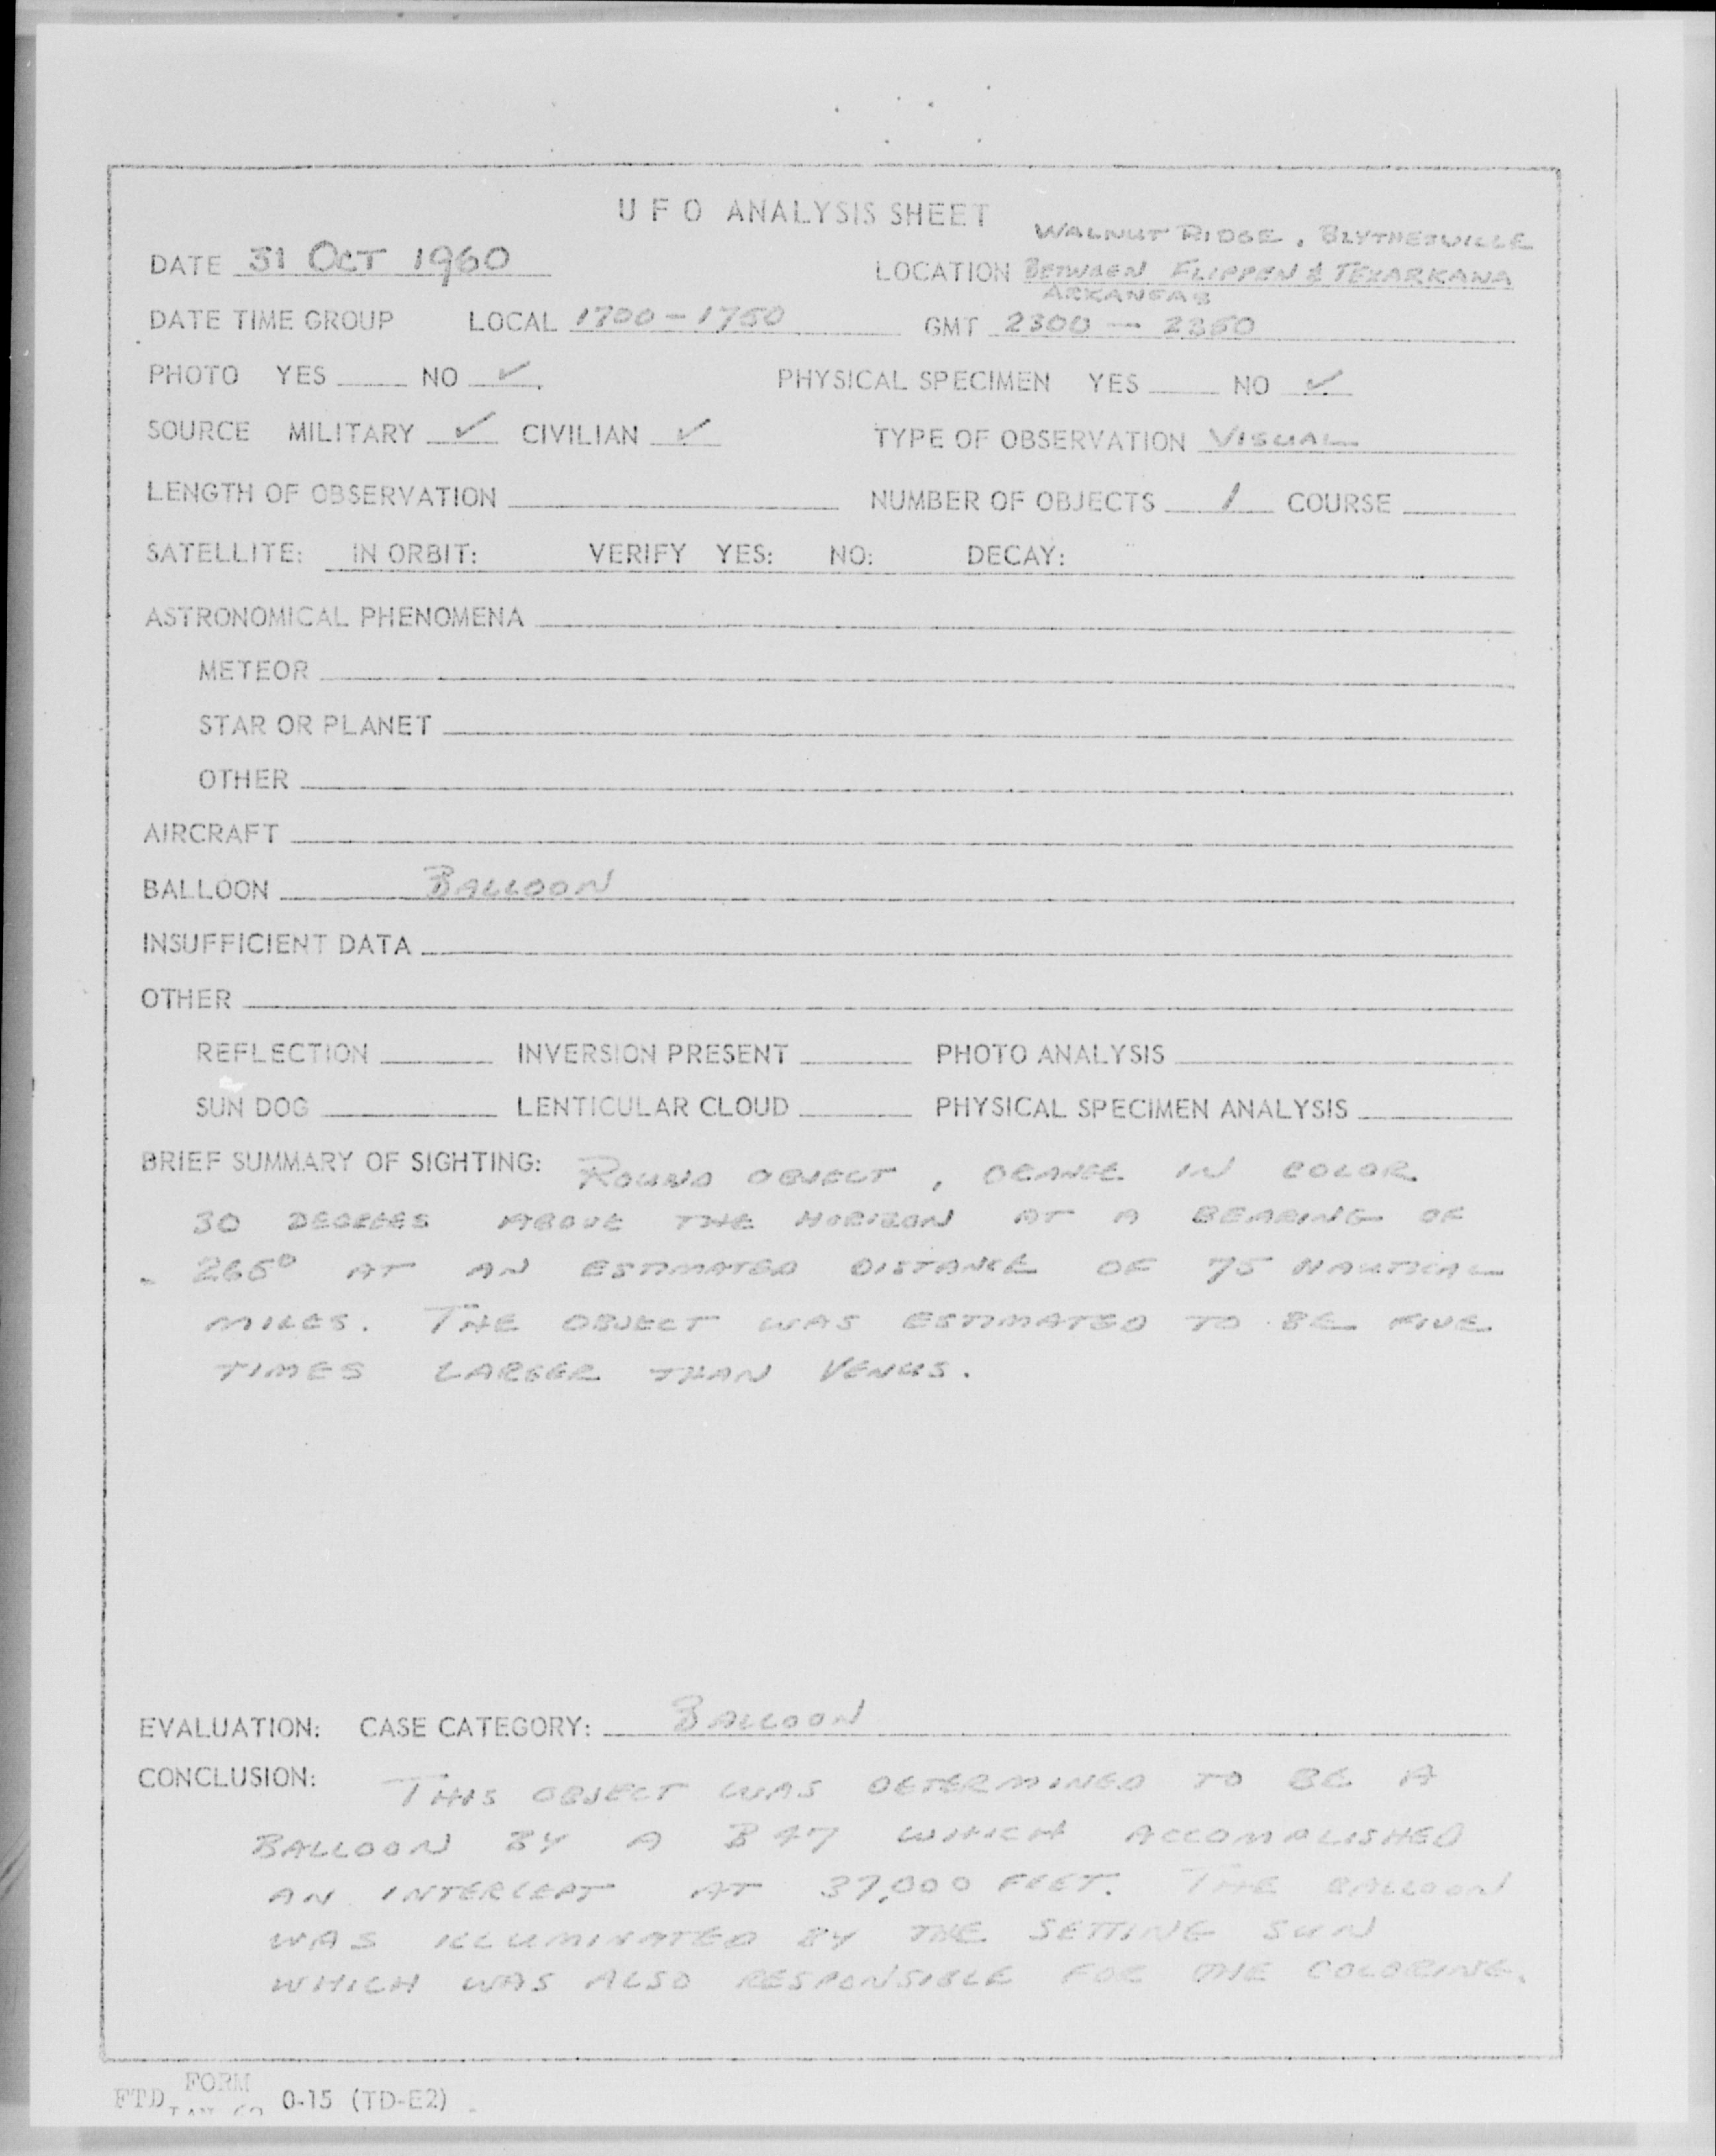 U F O ANALYSIS SHEET
WALNUT RIDGE, BLYTHESVILLE
DATE 31 OCT 1960
LOCATION BETWEEN FLIPPEN & TEXARKANA
ARKANSAS
DATE TIME GROUP LOCAL 1700 - 1750 GMT 2300 - 2350
PHOTO YES NO ✓ PHYSICAL SPECIMEN YES NO ✓
SOURCE MILITARY ✓ CIVILIAN ✓ TYPE OF OBSERVATION VISUAL
LENGTH OF OBSERVATION NUMBER OF OBJECTS 1 COURSE
SATELLITE: IN ORBIT: VERIFY YES: NO: DECAY:
ASTRONOMICAL PHENOMENA
METEOR
STAR OR PLANET
OTHER
AIRCRAFT
BALLOON BALLOON
INSUFFICIENT DATA
OTHER
REFLECTION INVERSION PRESENT PHOTO ANALYSIS
SUN DOG LENTICULAR CLOUD PHYSICAL SPECIMEN ANALYSIS
BRIEF SUMMARY OF SIGHTING: ROUND OBJECT, ORANGE IN COLOR
30 DEGREES ABOVE THE HORIZON AT A BEARING OF
265° AT AN ESTIMATED DISTANCE OF 75 NAUTICAL
MILES. THE OBJECT WAS ESTIMATED TO BE FIVE
TIMES LARGER THAN VENUS.
EVALUATION: CASE CATEGORY: BALLOON
CONCLUSION: THIS OBJECT WAS DETERMINED TO BE A
BALLOON BY A B47 WHICH ACCOMPLISHED
AN INTERCEPT AT 37,000 FEET. THE BALLOON
WAS ILLUMINATED BY THE SETTING SUN
WHICH WAS ALSO RESPONSIBLE FOR THE COLORING.
FTD FORM 0-15 (TD-E2)